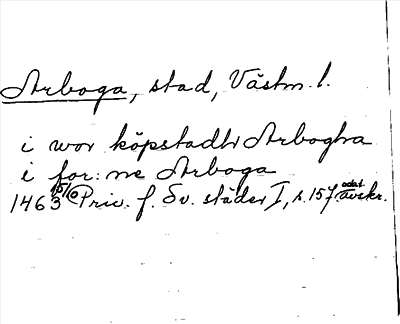 Arboga, stad, Västm. l.
i wor köpstadh Arbogha
i for:ne Arboga
1463 15/10 Priv. f. Sv. städer I, s. 157. odat. avskr.